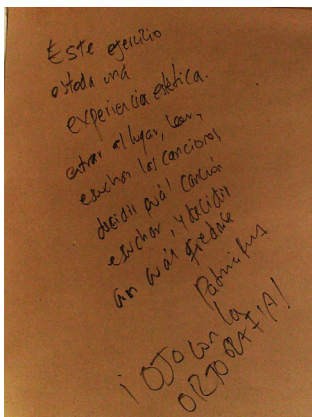 Este ejercicio
es toda una
experiencia estética.
entrar al lugar, leer,
escuchar las canciones,
decidir cuál canción
escuchar, y decidir
con cuál quedarme
¡OJO con la
ORTOGRAFIA!